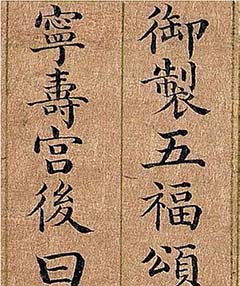 御製五福頌
寧壽宮後曰